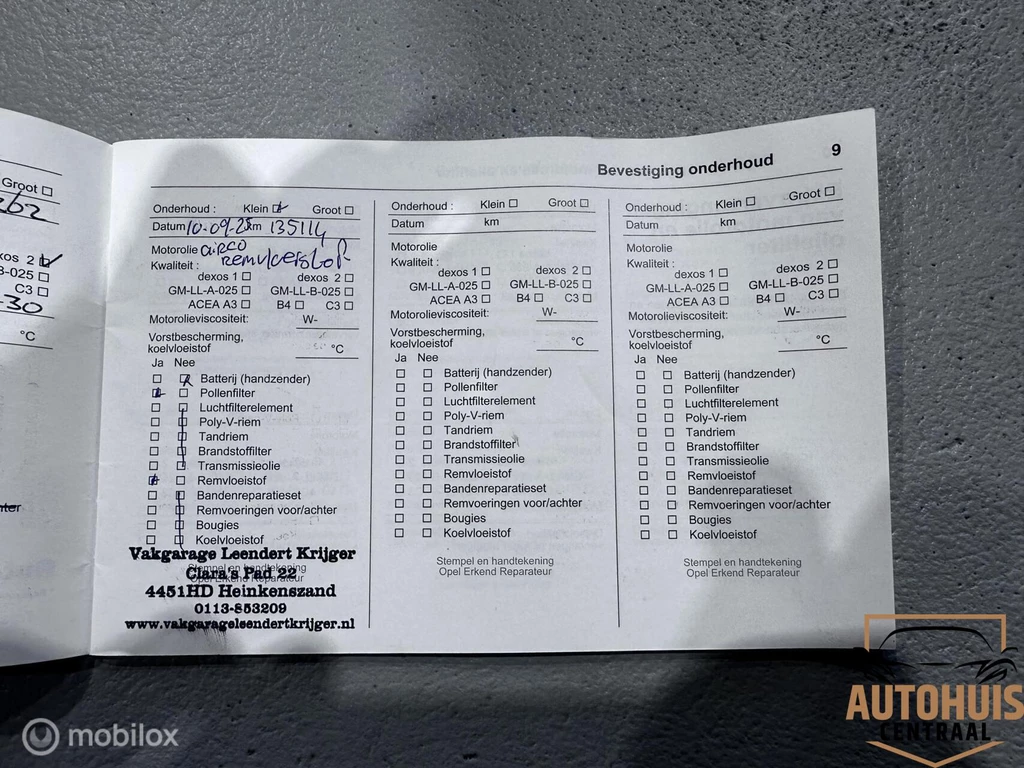 Groot
262
xos 2
B-025
C3
-30
°C
Bevestiging onderhoud 9
Onderhoud : Klein Groot
Datum 10-09-25 km 135114
Motorolie airco
remvloeistof
Kwaliteit :
dexos 1 dexos 2
GM-LL-A-025 GM-LL-B-025
ACEA A3 B4 C3
Motorolieviscositeit: W-
Vorstbescherming,
koelvloeistof °C
Ja Nee
Batterij (handzender)
Pollenfilter
Luchtfilterelement
Poly-V-riem
Tandriem
Brandstoffilter
Transmissieolie
Remvloeistof
Bandenreparatieset
Remvoeringen voor/achter
Bougies
Koelvloeistof
Vakgarage Leendert Krijger
Stempel en handtekening
Clara's Pad 22
Opel Erkend Reparateur
4451HD Heinkenszand
0113-853209
www.vakgarageleendertkrijger.nl
Onderhoud : Klein Groot
Datum km
Motorolie
Kwaliteit :
dexos 1 dexos 2
GM-LL-A-025 GM-LL-B-025
ACEA A3 B4 C3
Motorolieviscositeit: W-
Vorstbescherming,
koelvloeistof °C
Ja Nee
Batterij (handzender)
Pollenfilter
Luchtfilterelement
Poly-V-riem
Tandriem
Brandstoffilter
Transmissieolie
Remvloeistof
Bandenreparatieset
Remvoeringen voor/achter
Bougies
Koelvloeistof
Stempel en handtekening
Opel Erkend Reparateur
Onderhoud : Klein Groot
Datum km
Motorolie
Kwaliteit :
dexos 1 dexos 2
GM-LL-A-025 GM-LL-B-025
ACEA A3 B4 C3
Motorolieviscositeit: W-
Vorstbescherming,
koelvloeistof °C
Ja Nee
Batterij (handzender)
Pollenfilter
Luchtfilterelement
Poly-V-riem
Tandriem
Brandstoffilter
Transmissieolie
Remvloeistof
Bandenreparatieset
Remvoeringen voor/achter
Bougies
Koelvloeistof
Stempel en handtekening
Opel Erkend Reparateur
mobilox
AUTOHUIS
CENTRAAL